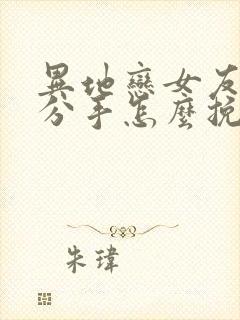 異地戀女友
分手怎麼挽
朱瑋